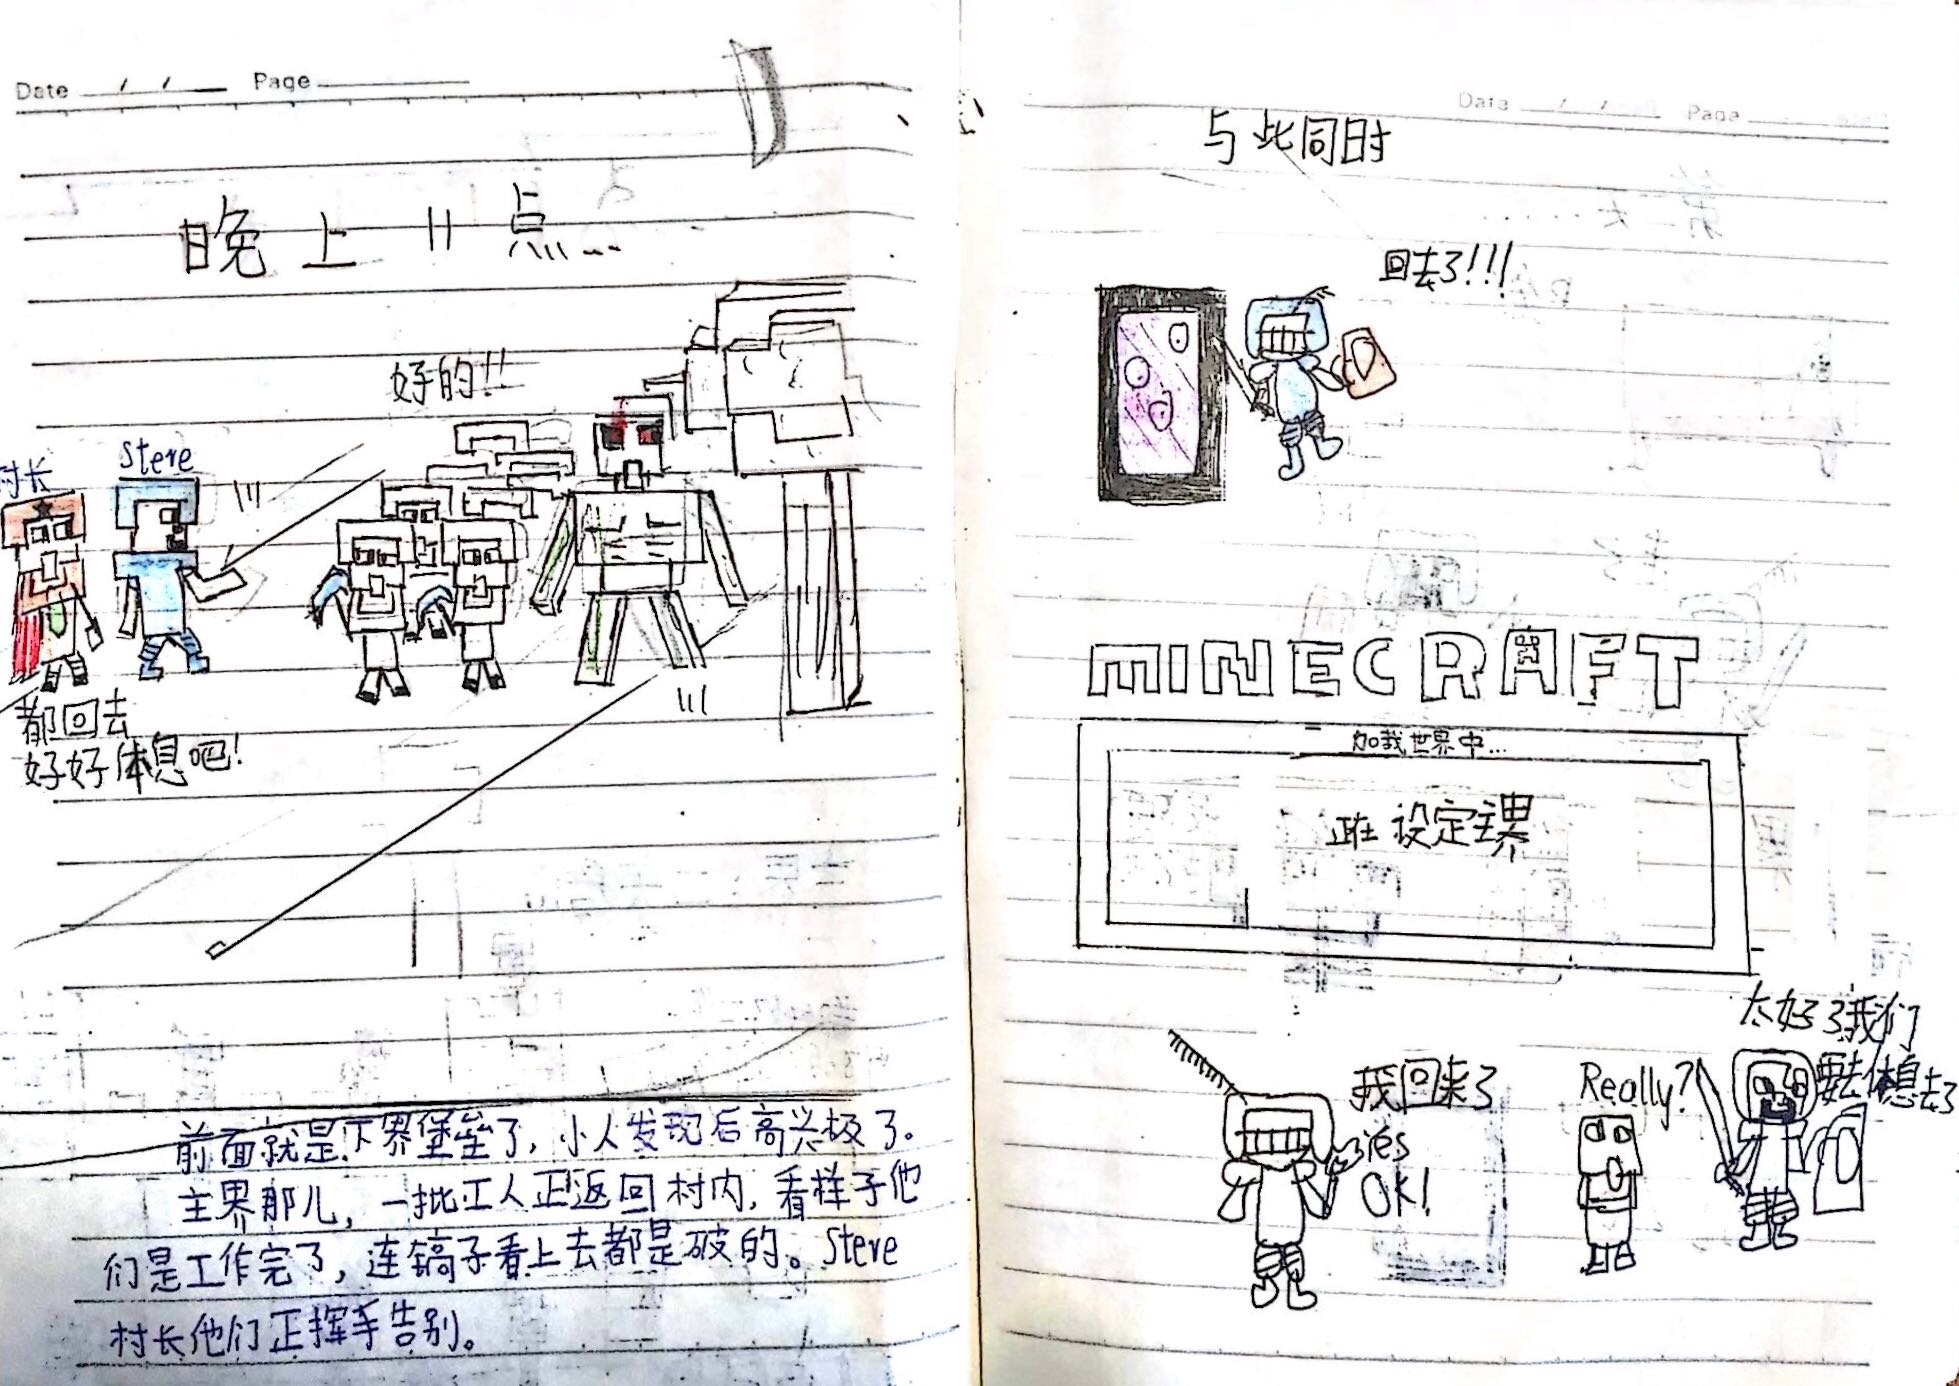 Date / / Page
晚上11点...
好的!!
村长
Steve
都回去
好好休息吧!
前面就是下界堡垒了，小人发现后高兴极了。
主界那儿，一批工人正返回村内，看样子他
们是工作完了，连镐子看上去都是破的。Steve
村长他们正挥手告别。
Date / / Page
与此同时
回去了!!!
MINECRAFT
加载世界中...
正在设定主界
我回来了
yes
OK!
Really?
太好了我们
要去休息去了